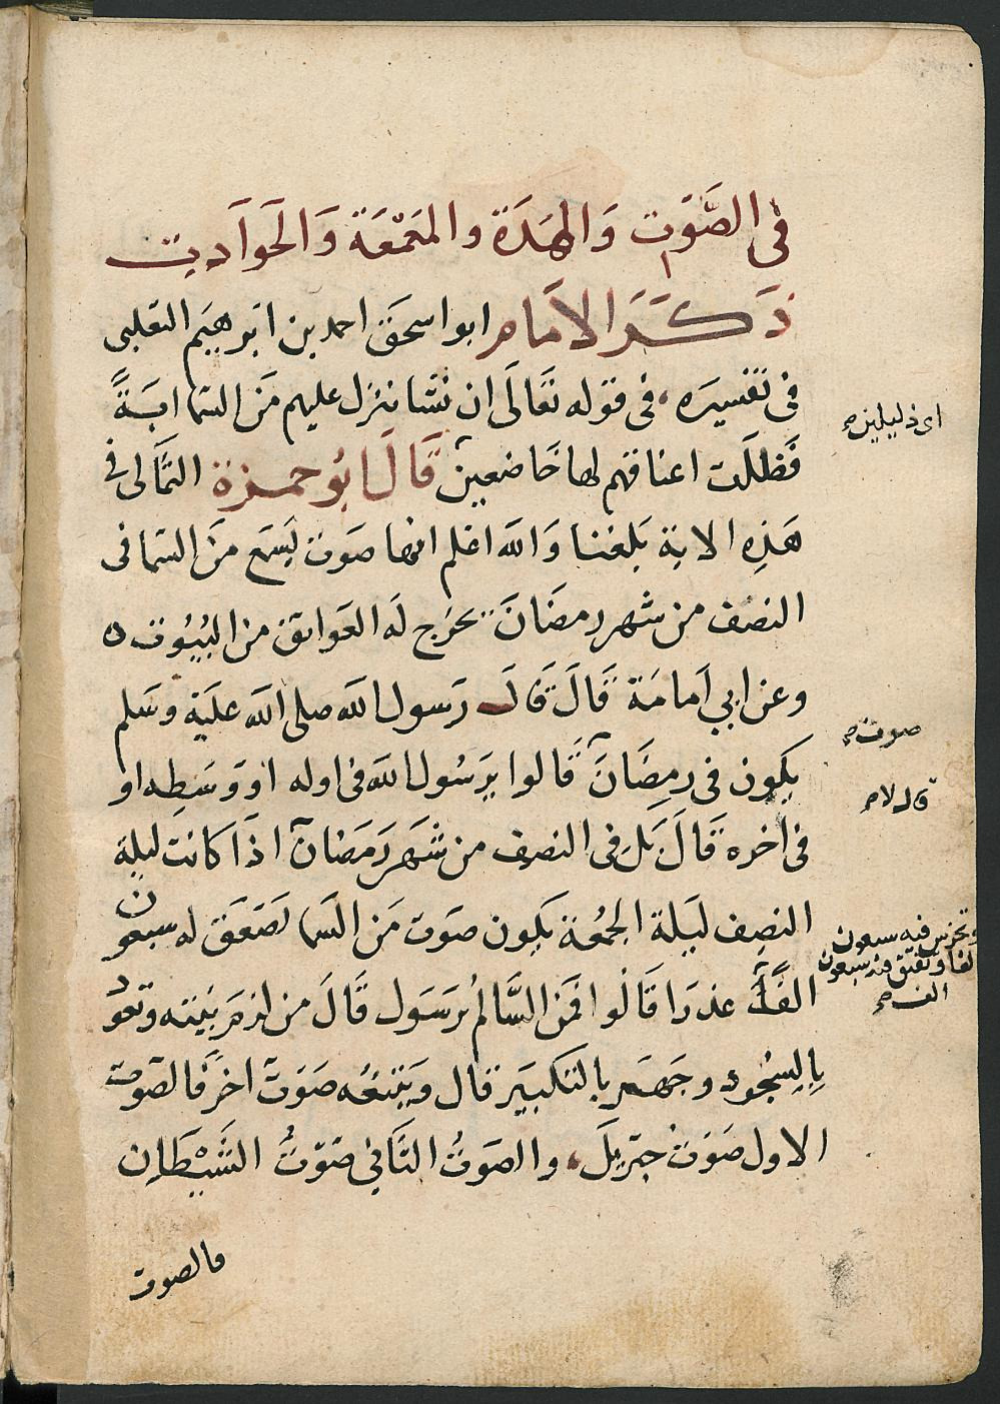 في الصَّوت وَالهَدَة والمَعمَعَة وَالحَوادِيث
ذَكَرَ الامَام ابو اسحَق احمد بن ابرهيَم الثعلبي
في تفسيرَه، في قوله تعَالَى ان نشا ننزل عليهم مَن السَما ايَةً
فَظلَت اعناقهم لها خاضعين قَالَ ابُو حمزة الثمَالى في
هَذِه الاية بَلغنا وَالله اعلم انها صَوت يَسمع مَن السما فى
النصف من شهر رمضَانَ يخرَج لَه العَواتق من البُيُوت ه
وعن ابي اَمامَة قَالَ قَالَ رَسول الله صلى الله عليَه وسَلم
يكون في رمضَانَ قَالوا يرَسُول الله فى اوله او وَسَطِه او
في اخره قَالَ بَل فى النصف من شَهَر رَمَضان اذَا كانت ليلة
النصِف ليَلة الجمُعة يكون صوَت مَن السَما تصَعَق له سبعون
الفًا عذرَا قَالُوا فمَن السَّالمُ يرَسَول قَالَ من لزمَ بَيته وتعود
بِالسُجود وجَهَر بالتكبيَر قال ويَتبعُه صَوتَ اخَر فَالصَوت
الاول صَوَت جبَريلَ، والصَوتُ الثَاني صَوّتُ الشَيْطَاِن
فالصوت
اى ذليلين صح
صوت صح
قال لا صح
وتخرس فيه سبعون
الفا وتفتق فيه سبعون
الف صح